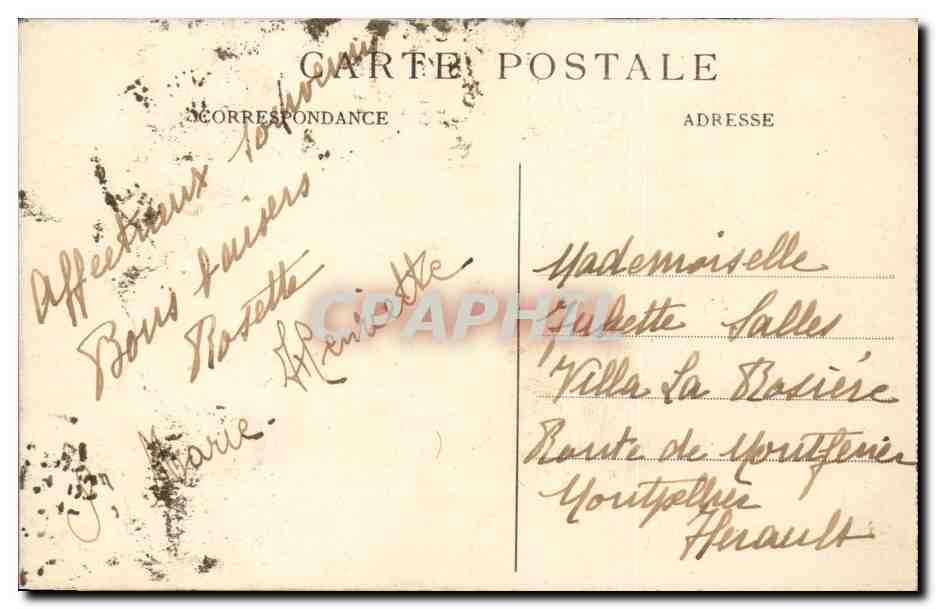 CARTE POSTALE
CORRESPONDANCE
ADRESSE
Affectueux souvenir
Bons baisers
Rosette
Henriette
Marie
Mademoiselle
Juliette Salles
Villa La Rosière
Route de Montferrier
Montpellier
Herault
CPAPHIL